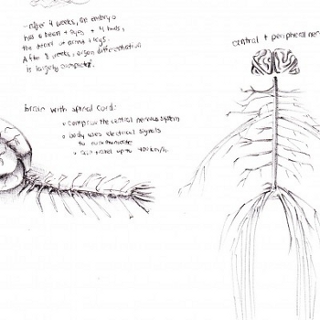 after 4 weeks, an embryo
has a heart + eyes + 
the of arms + legs.
After 8 weeks, organ differentiation
is largely completed.
central + peripheral ner
Brain with spinal cord:
comprise the central nervous system
body uses electrical signals
to communicate
travel up to 400 km/h